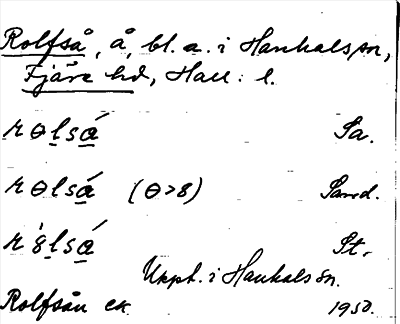 Rolfså, å, bl. a. i Hanhals sn,
Fjäre hd, Hall. l.
rɵlsá Sa.
rɵlsá (ɵ>8) Sand.
r'8lsá St.
Uppt. i Hanhals sn.
Rolfsån ek. 1950.